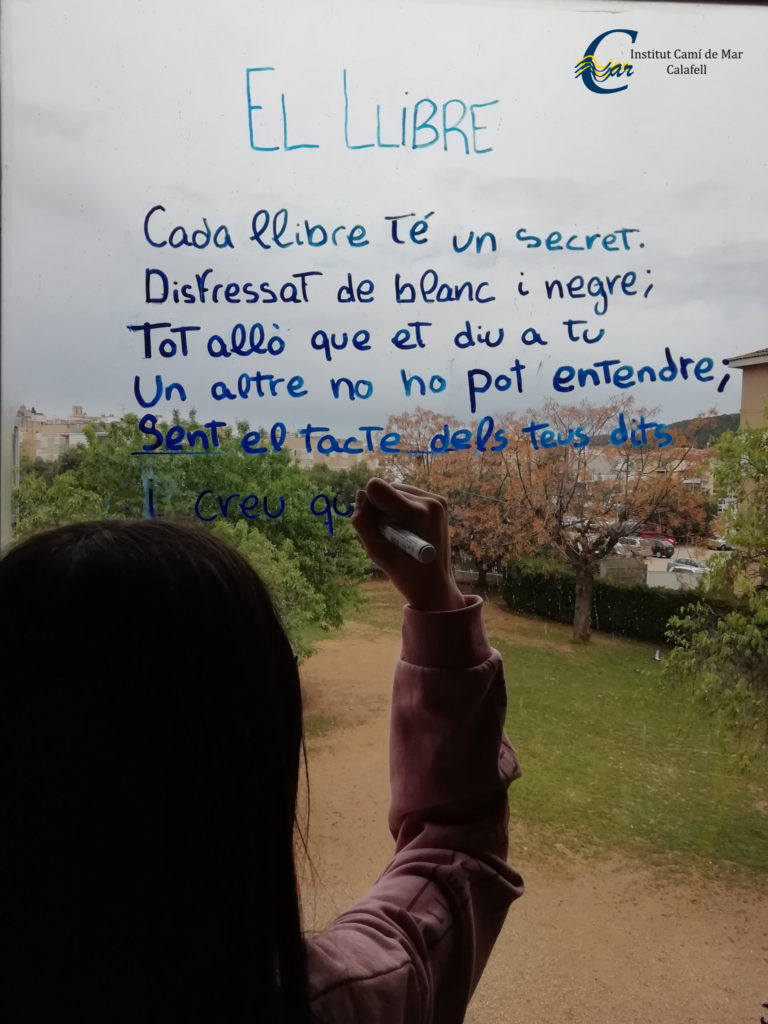 Institut Camí de Mar
Calafell
EL LLIBRE
Cada llibre té un secret.
Disfressat de blanc i negre;
Tot allò que et diu a tu
Un altre no ho pot entendre;
Sent el tacte dels teus dits
I creu qu